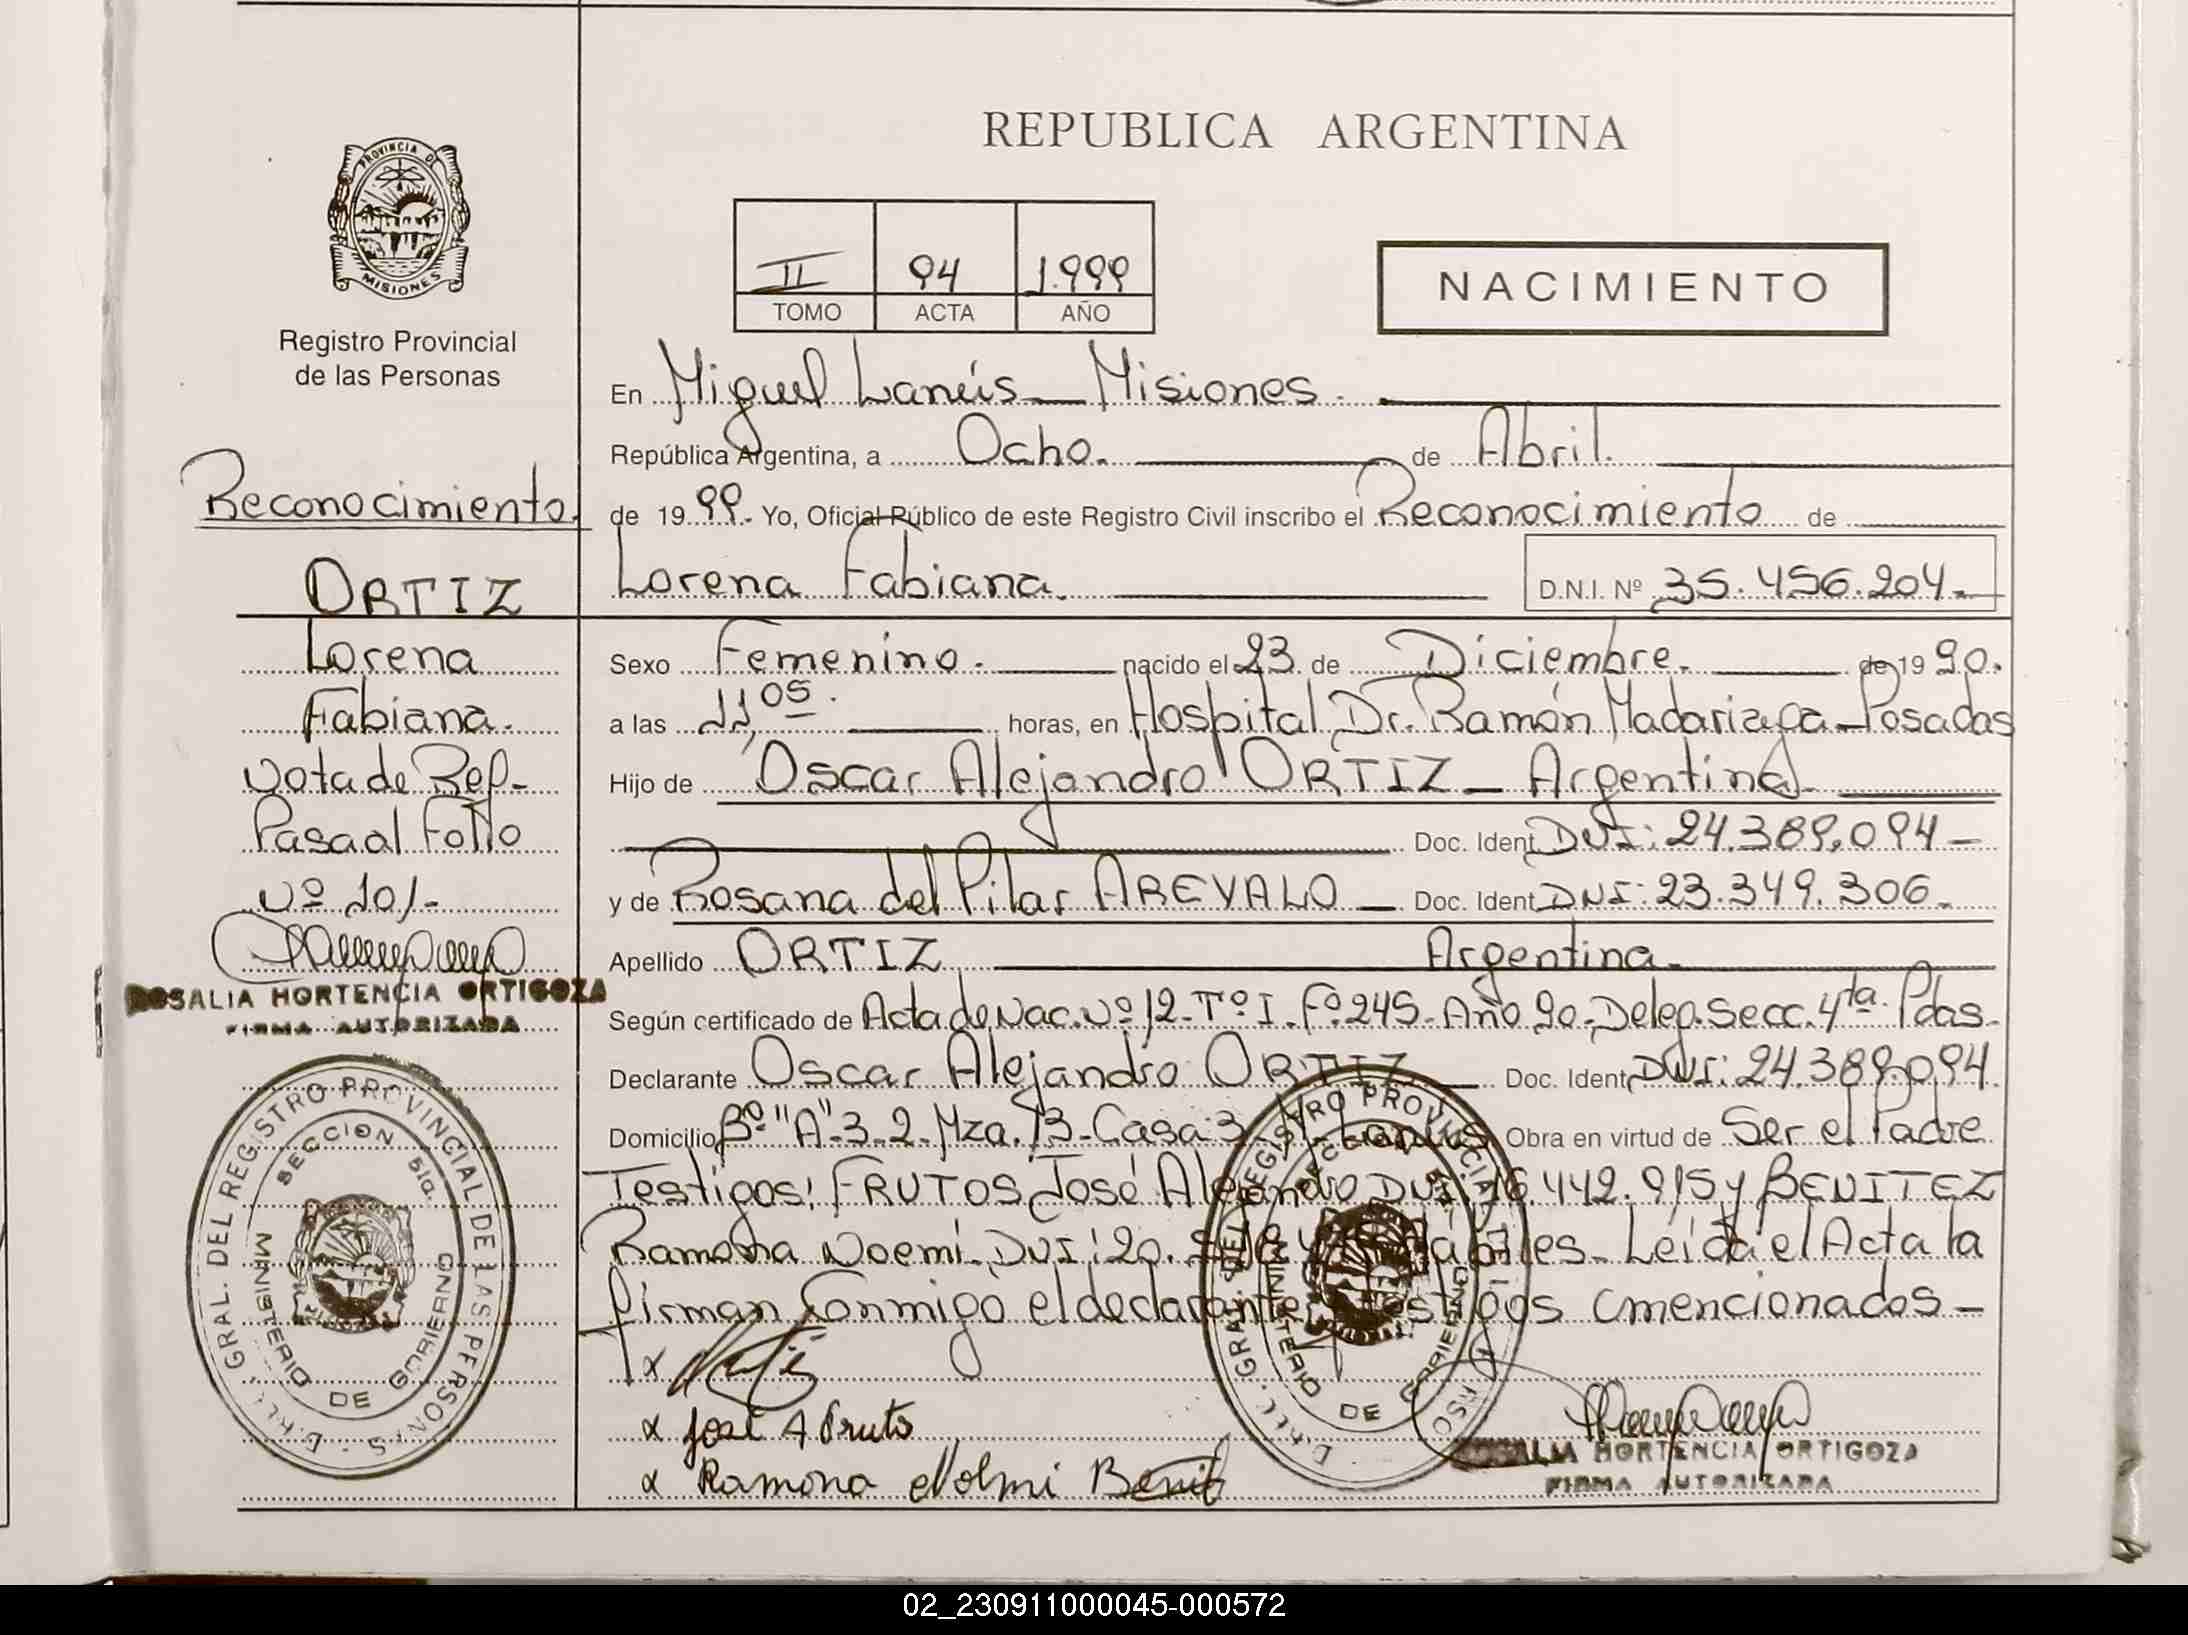 REPUBLICA ARGENTINA
PROVINCIA D
MISIONES
Registro Provincial
de las Personas
II 94 1.999
TOMO ACTA AÑO
NACIMIENTO
Reconocimiento.
ORTIZ
Lorena
Fabiana.
Nota de Ref-
Pasa al Folio
Nº 101-
ROSALIA HORTENCIA ORTIGOZA
FIRMA AUTORIZADA
GRAL. DEL REGISTRO PROVINCIAL DE LAS PERSONAS
SECCION 5ta.
MINISTERIO DE GOBIERNO
En Miguel Lanús - Misiones.
República Argentina, a Ocho. de Abril.
de 1999.- Yo, Oficial Público de este Registro Civil inscribo el Reconocimiento de
Lorena Fabiana. D.N.I. Nº 35.456.204.-
Sexo Femenino. nacido el 23 de Diciembre. de 1990.
a las 11,05. horas, en Hospital Dr. Ramón Madariaga - Posadas
Hijo de Oscar Alejandro ORTIZ - Argentina.
Doc. Ident DNI: 24.389.094-
y de Rosana del Pilar AREVALO - Doc. Ident DNI: 23.349.306.
Apellido ORTIZ Argentina.
Según certificado de Acta de Nac. Nº 12. Tº I. Fº 245. Año 90. Deleg. Secc. 4ta. Pdas.
Declarante Oscar Alejandro ORTIZ Doc. Ident DNI: 24.389.094.
Domicilio Bº "A" 3-2. Mza. 13. Casa 3 - Lanús Obra en virtud de Ser el Padre
Testigos: FRUTOS José Alejandro DNI: 16.442.915 y BENITEZ
Ramona Noemi. DNI: 20. Habiles. Leída el Acta la
firman Conmigo el declarante testigos mencionados -
x
x José A Fruto
x Ramona Nohmi Benit
GRAL. DEL REGISTRO PROVINCIAL
MINISTERIO DE GOBIERNO
ROSALIA HORTENCIA ORTIGOZA
FIRMA AUTORIZADA
02_230911000045-000572